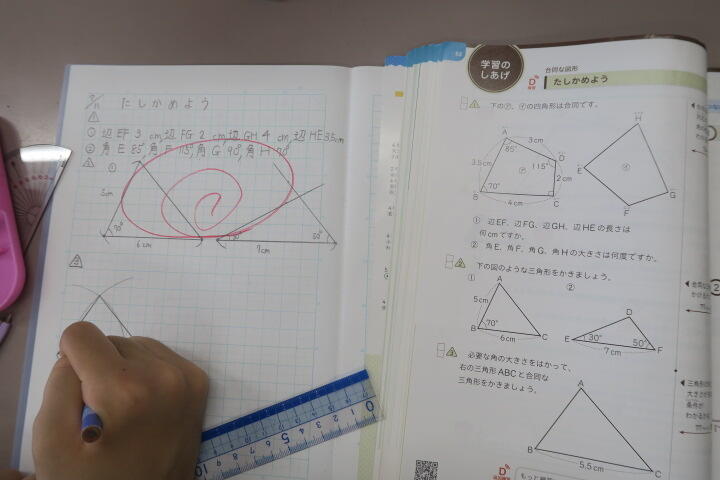 たしかめよう
① 辺EF 3 cm, 辺FG 2 cm, 辺GH 4 cm, 辺HE 3.5cm
② 角E 85°, 角F 115°, 角G 90°, 角H 70°
①
5cm
70°
6cm
30°
50°
7cm
学習の
しあげ
合同な図形
たしかめよう
1 下の㋐、㋑の四角形は合同です。
A
3cm
85°
D
115°
3.5cm
㋐
2cm
70°
B
4cm
C
H
E
㋑
G
F
① 辺EF、辺FG、辺GH、辺HEの長さは
何cmですか。
② 角E、角F、角G、角Hの大きさは何度ですか。
2 下の図のような三角形をかきましょう。
①
A
5cm
70°
B
6cm
C
②
D
E
30°
50°
F
7cm
3 必要な角の大きさをはかって、
右の三角形ABCと合同な
三角形をかきましょう。
A
B
5.5cm
C
0
5
10